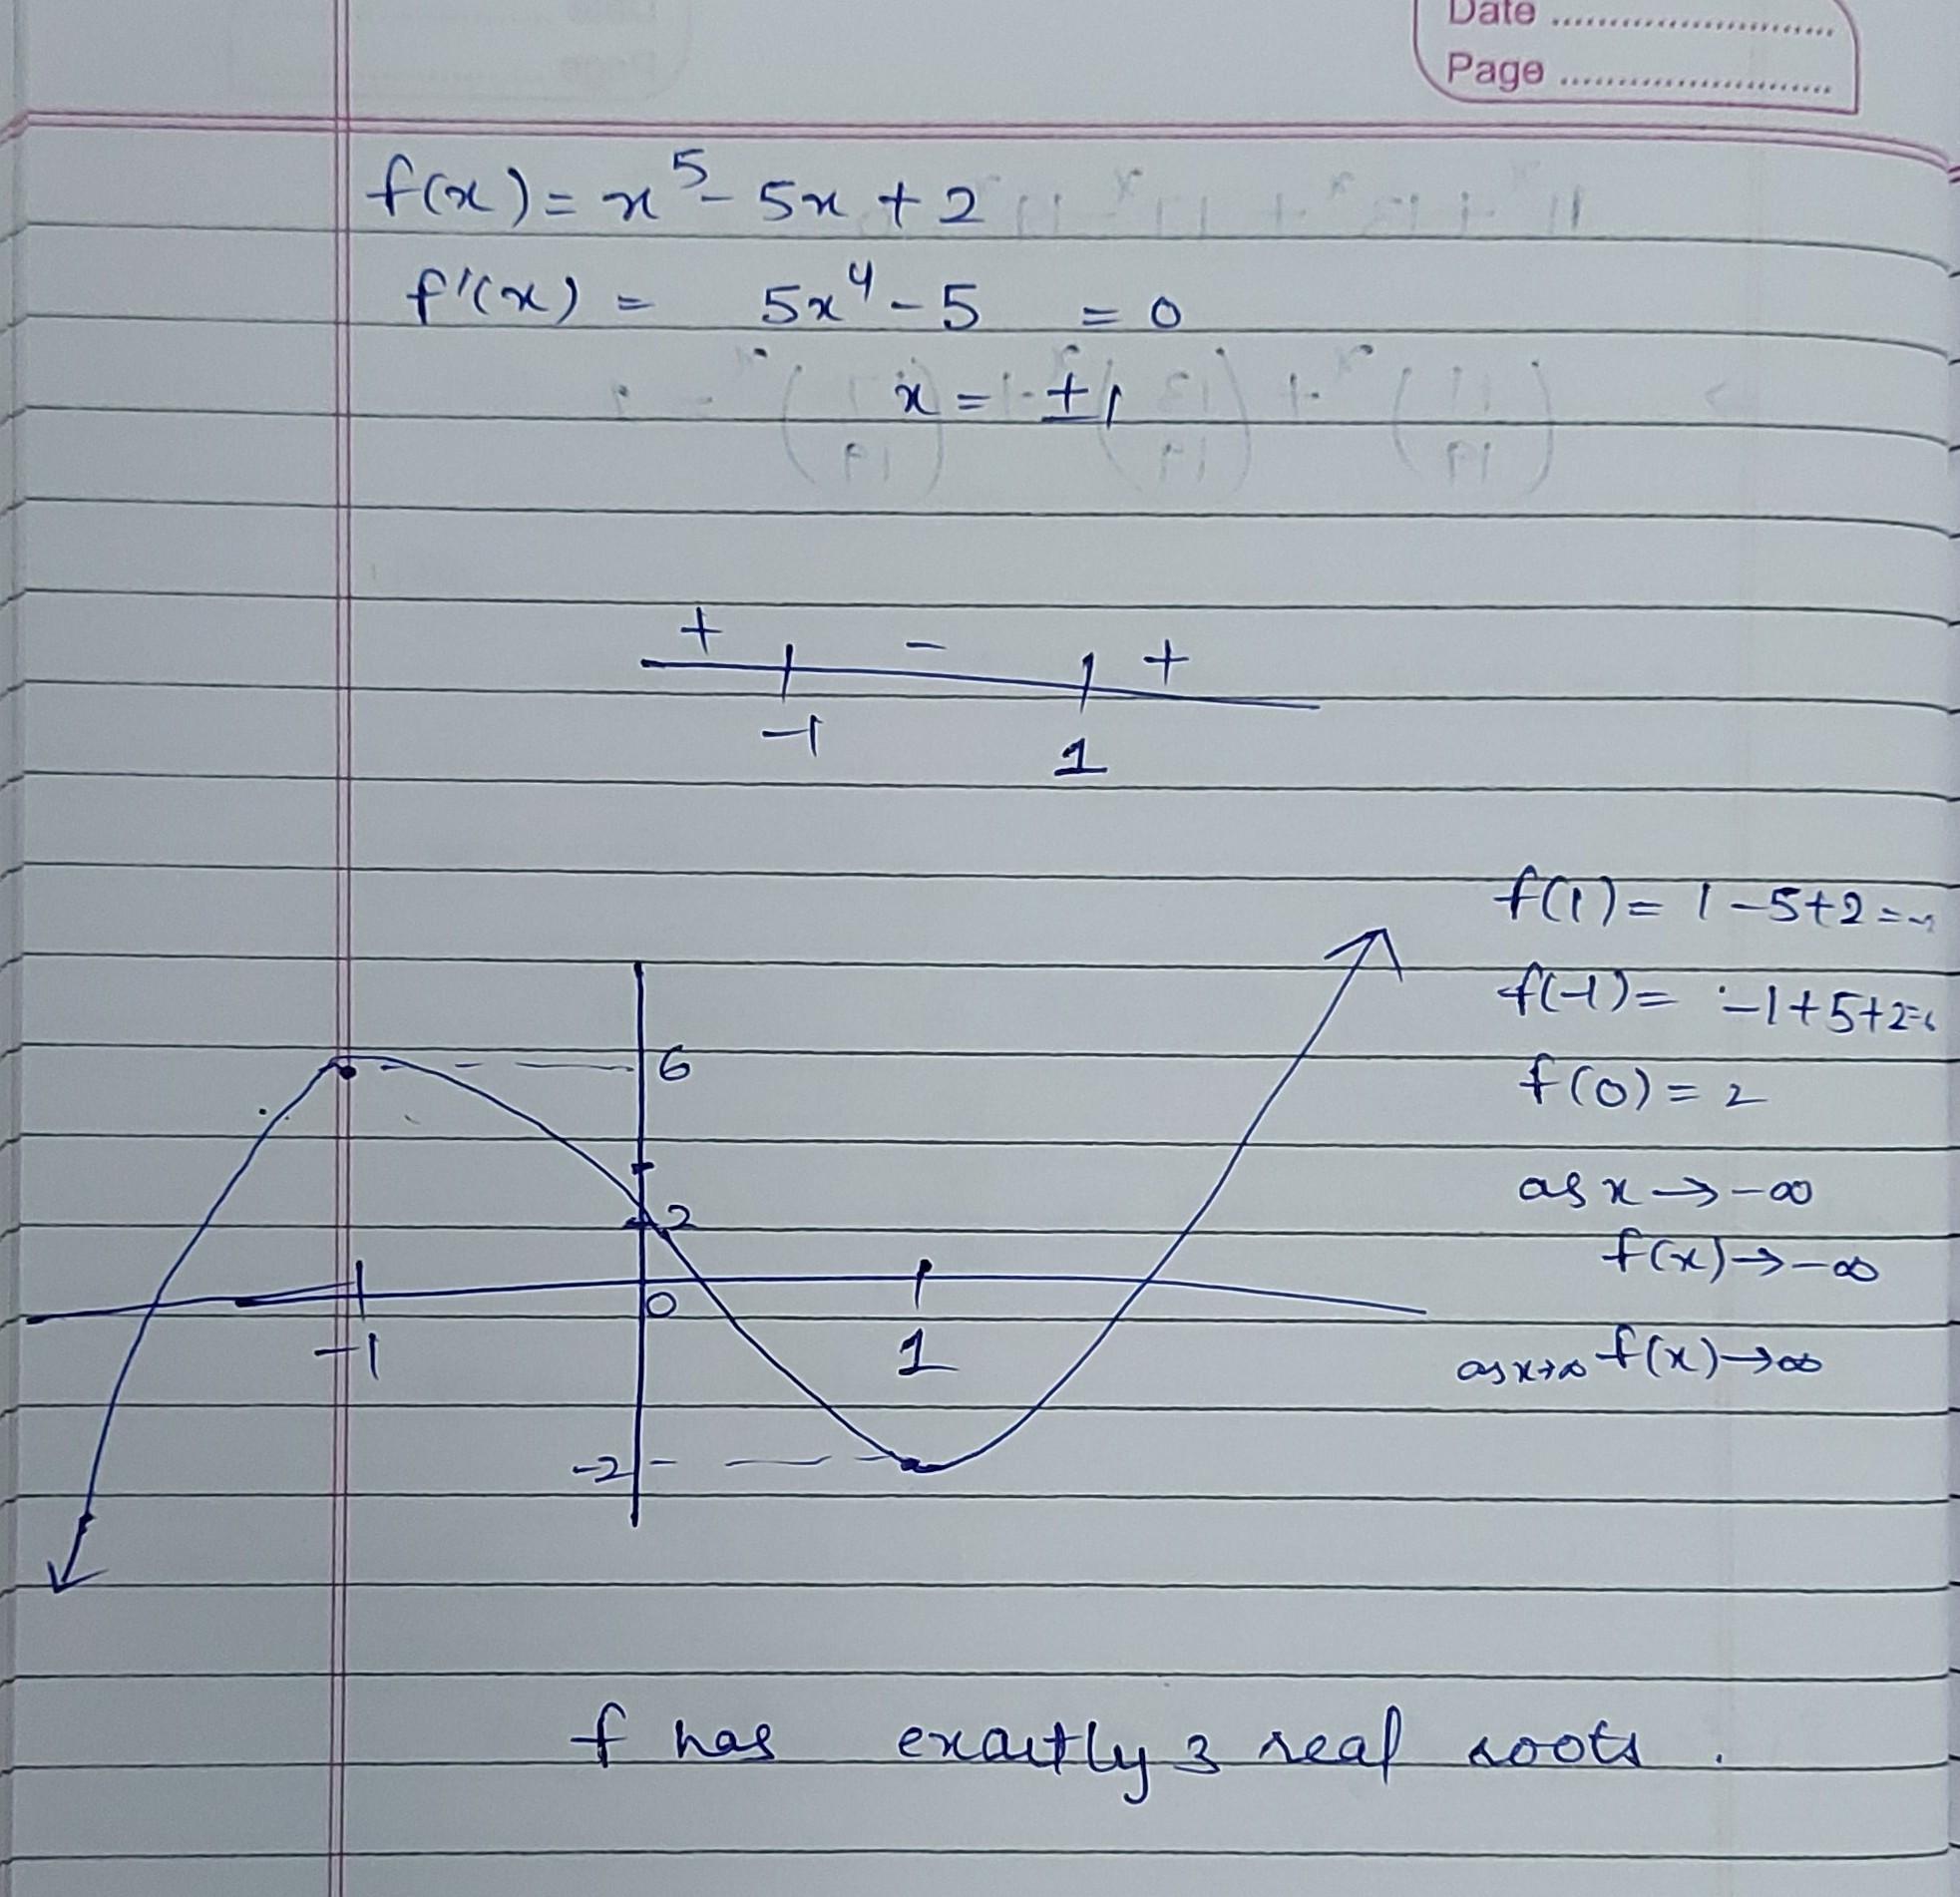 Date
Page
f(x) = x⁵ - 5x + 2
f'(x) = 5x⁴ - 5 = 0
x = ±1
+ - +
-1 1
f(1) = 1 - 5 + 2 = -2
f(-1) = -1 + 5 + 2 = 6
6
f(0) = 2
as x → -∞
2
f(x) → -∞
0
-1 1
as x→∞ f(x) → ∞
-2
f has exactly 3 real roots.